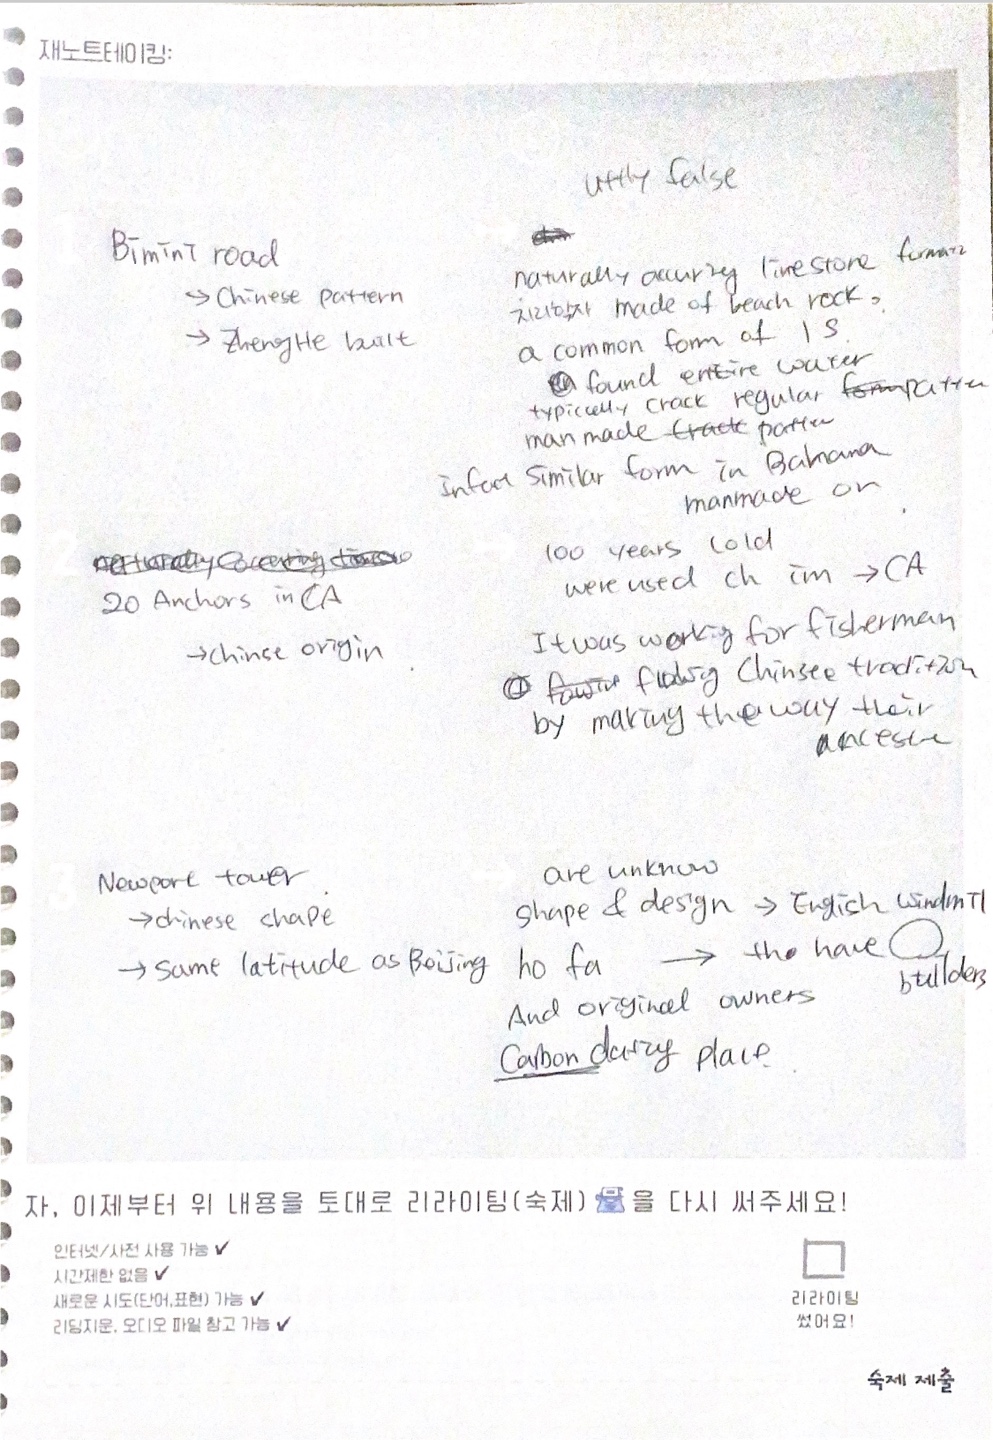 재노트테이킹:
uttly false
Bimini road
→ Chinese pattern
→ ZhengHe built
naturally occurizg linestone
지리학자 made of beach rock.
a common form of IS
found entire water
typiclly crack regular pattern
man made pattern
Infact Similar form in Bahama
manmade or
20 Anchors in CA
→ chinse origin
100 years cold
were used ch im → CA
It was workig for fisherman
Chinsee tradition
by making the way their
Newport tower
→ chinese shape
→ same latitude as Beijing
are unknow
shape & design → English windmil
ho fa → tho have
builders
And original owners
Carbon place
자, 이제부터 위 내용을 토대로 리라이팅(숙제) 을 다시 써주세요!
인터넷/사전 사용 가능 ✓
시간제한 없음 ✓
새로운 시도(단어,표현) 가능 ✓
리딩지문, 오디오 파일 참고 가능 ✓
리라이팅
썼어요!
숙제 제출